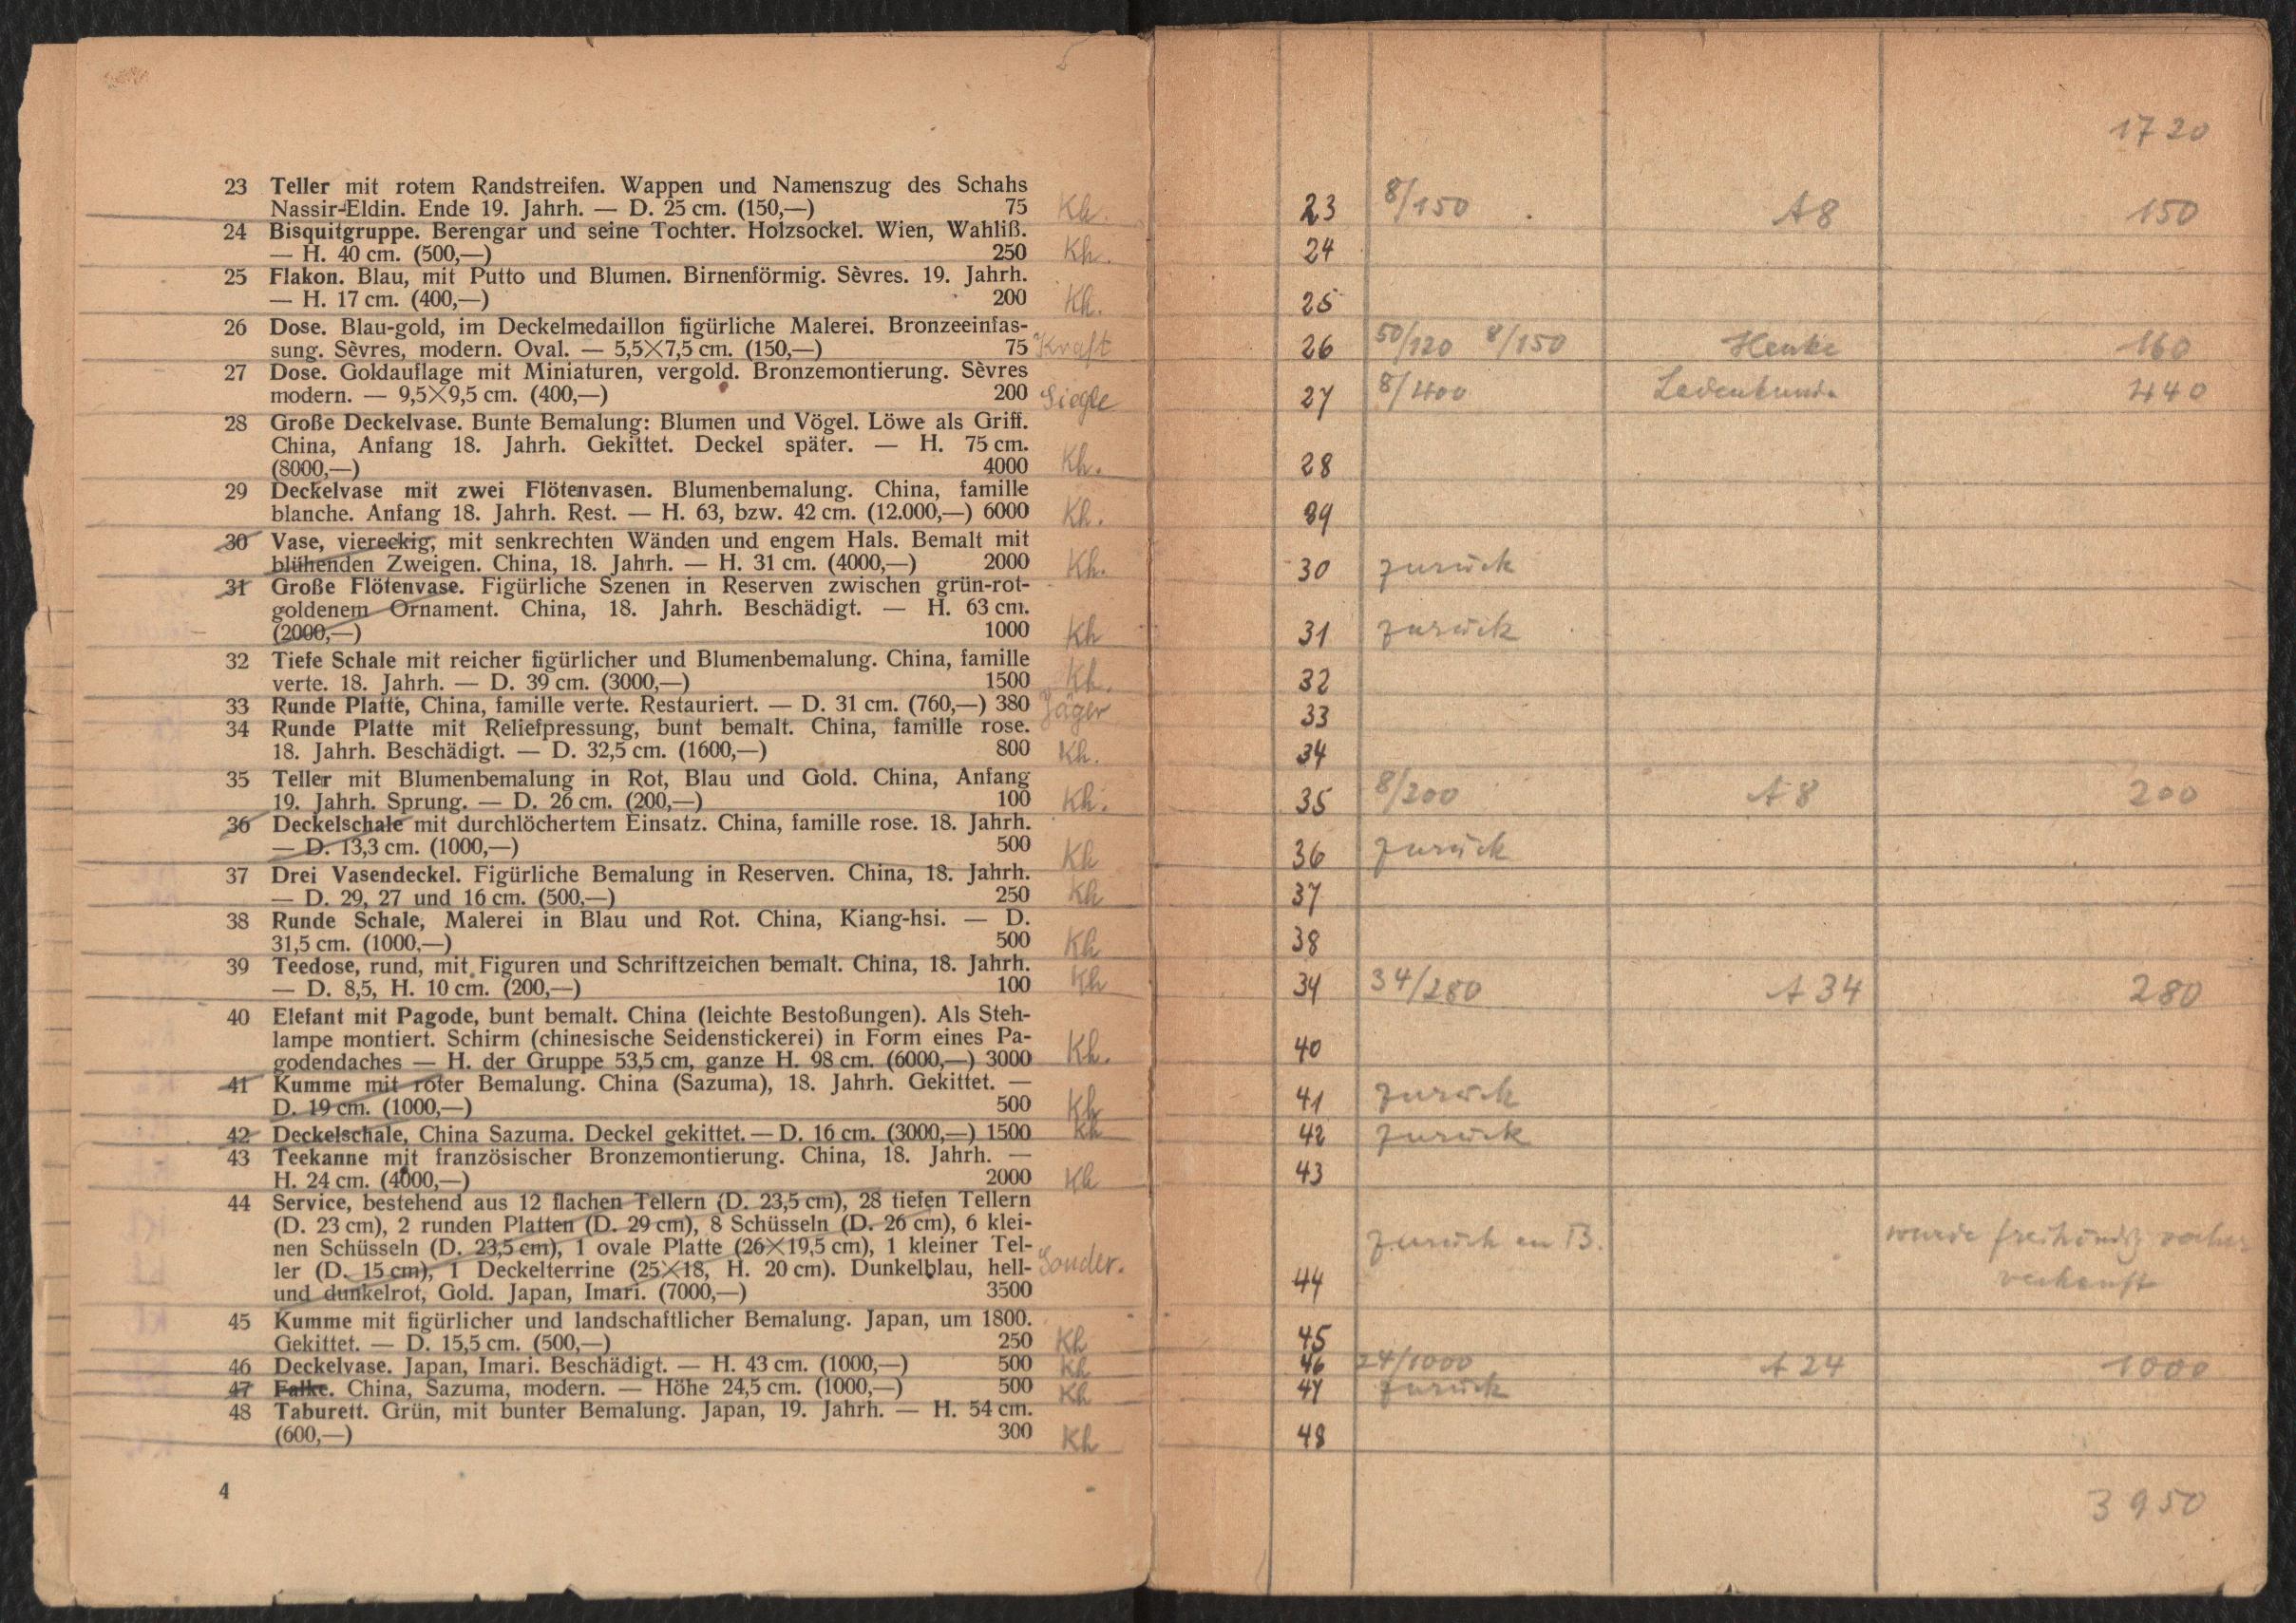 23 Teller mit rotem Randstreifen. Wappen und Namenszug des Schahs
Nassir-Eldin. Ende 19. Jahrh. — D. 25 cm. (150,—) 75 Kh.
24 Bisquitgruppe. Berengar und seine Tochter. Holzsockel. Wien, Wahliß.
— H. 40 cm. (500,—) 250 Kh.
25 Flakon. Blau, mit Putto und Blumen. Birnenförmig. Sèvres. 19. Jahrh.
— H. 17 cm. (400,—) 200 Kh.
26 Dose. Blau-gold, im Deckelmedaillon figürliche Malerei. Bronzeeinfas-
sung. Sèvres, modern. Oval. — 5,5×7,5 cm. (150,—) 75 Kraft
27 Dose. Goldauflage mit Miniaturen, vergold. Bronzemontierung. Sèvres
modern. — 9,5×9,5 cm. (400,—) 200 Siegle
28 Große Deckelvase. Bunte Bemalung: Blumen und Vögel. Löwe als Griff.
China, Anfang 18. Jahrh. Gekittet. Deckel später. — H. 75 cm.
(8000,—) 4000 Kh.
29 Deckelvase mit zwei Flötenvasen. Blumenbemalung. China, famille
blanche. Anfang 18. Jahrh. Rest. — H. 63, bzw. 42 cm. (12.000,—) 6000 Kh.
30 Vase, viereckig, mit senkrechten Wänden und engem Hals. Bemalt mit
blühenden Zweigen. China, 18. Jahrh. — H. 31 cm. (4000,—) 2000 Kh.
31 Große Flötenvase. Figürliche Szenen in Reserven zwischen grün-rot-
goldenem Ornament. China, 18. Jahrh. Beschädigt. — H. 63 cm.
(2000,—) 1000 Kh
32 Tiefe Schale mit reicher figürlicher und Blumenbemalung. China, famille
verte. 18. Jahrh. — D. 39 cm. (3000,—) 1500 Kh.
33 Runde Platte, China, famille verte. Restauriert. — D. 31 cm. (760,—) 380 Jäger
34 Runde Platte mit Reliefpressung, bunt bemalt. China, famille rose.
18. Jahrh. Beschädigt. — D. 32,5 cm. (1600,—) 800 Kh.
35 Teller mit Blumenbemalung in Rot, Blau und Gold. China, Anfang
19. Jahrh. Sprung. — D. 26 cm. (200,—) 100 Kh.
36 Deckelschale mit durchlöchertem Einsatz. China, famille rose. 18. Jahrh.
— D. 13,3 cm. (1000,—) 500 Kh
37 Drei Vasendeckel. Figürliche Bemalung in Reserven. China, 18. Jahrh.
— D. 29, 27 und 16 cm. (500,—) 250 Kh
38 Runde Schale, Malerei in Blau und Rot. China, Kiang-hsi. — D.
31,5 cm. (1000,—) 500 Kh
39 Teedose, rund, mit Figuren und Schriftzeichen bemalt. China, 18. Jahrh.
— D. 8,5, H. 10 cm. (200,—) 100 Kh
40 Elefant mit Pagode, bunt bemalt. China (leichte Bestoßungen). Als Steh-
lampe montiert. Schirm (chinesische Seidenstickerei) in Form eines Pa-
godendaches — H. der Gruppe 53,5 cm, ganze H. 98 cm. (6000,—) 3000 Kh.
41 Kumme mit roter Bemalung. China (Sazuma), 18. Jahrh. Gekittet. —
D. 19 cm. (1000,—) 500 Kh
42 Deckelschale, China Sazuma. Deckel gekittet. — D. 16 cm. (3000,—) 1500 Kh
43 Teekanne mit französischer Bronzemontierung. China, 18. Jahrh. —
H. 24 cm. (4000,—) 2000 Kh
44 Service, bestehend aus 12 flachen Tellern (D. 23,5 cm), 28 tiefen Tellern
(D. 23 cm), 2 runden Platten (D. 29 cm), 8 Schüsseln (D. 26 cm), 6 klei-
nen Schüsseln (D. 23,5 cm), 1 ovale Platte (26×19,5 cm), 1 kleiner Tel-
ler (D. 15 cm), 1 Deckelterrine (25×18, H. 20 cm). Dunkelblau, hell- Sonder.
und dunkelrot, Gold. Japan, Imari. (7000,—) 3500
45 Kumme mit figürlicher und landschaftlicher Bemalung. Japan, um 1800.
Gekittet. — D. 15,5 cm. (500,—) 250 Kh
46 Deckelvase. Japan, Imari. Beschädigt. — H. 43 cm. (1000,—) 500 Kh
47 Falke. China, Sazuma, modern. — Höhe 24,5 cm. (1000,—) 500 Kh
48 Taburett. Grün, mit bunter Bemalung. Japan, 19. Jahrh. — H. 54 cm.
(600,—) 300 Kh
4
1720
23 8/150 A8 150
24
25
26 50/120 8/150 Henke 160
27 8/400 440
28
29
30 zurück
31 zurück
32
33
34
35 8/200 A8 200
36 zurück
37
38
39 34/280 A34 280
40
41 zurück
42 zurück
43
zurück an B. wurde freihändig vorher
44 verkauft
45
46 24/1000 A24 1000
47 zurück
48
3950